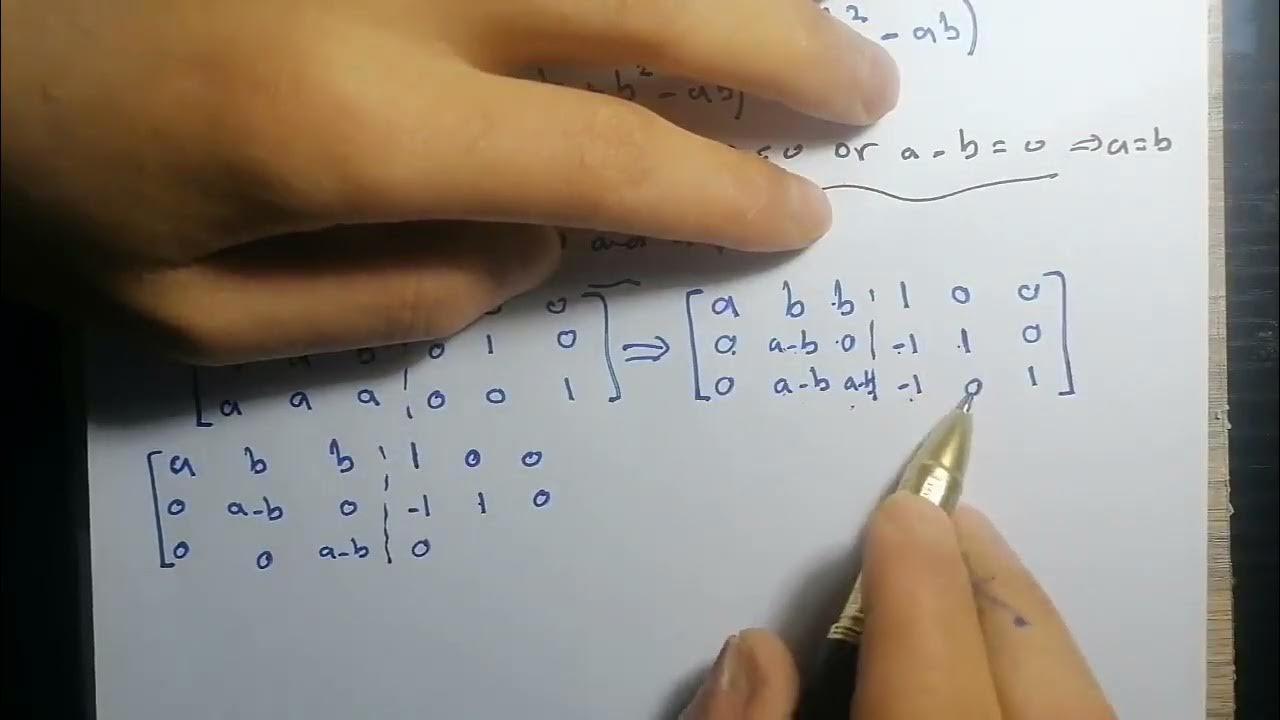 ² - ab)
b² - ab)
= 0 or a - b = 0 ⇒ a = b
and
0
0 1 0
a a a ¦ 0 0 1
⇒
[ a b b ¦ 1 0 0
0 a-b 0 | -1 1 0
0 a-b a-b | -1 0 1 ]
[ a b b ¦ 1 0 0
0 a-b 0 ¦ -1 1 0
0 0 a-b | 0